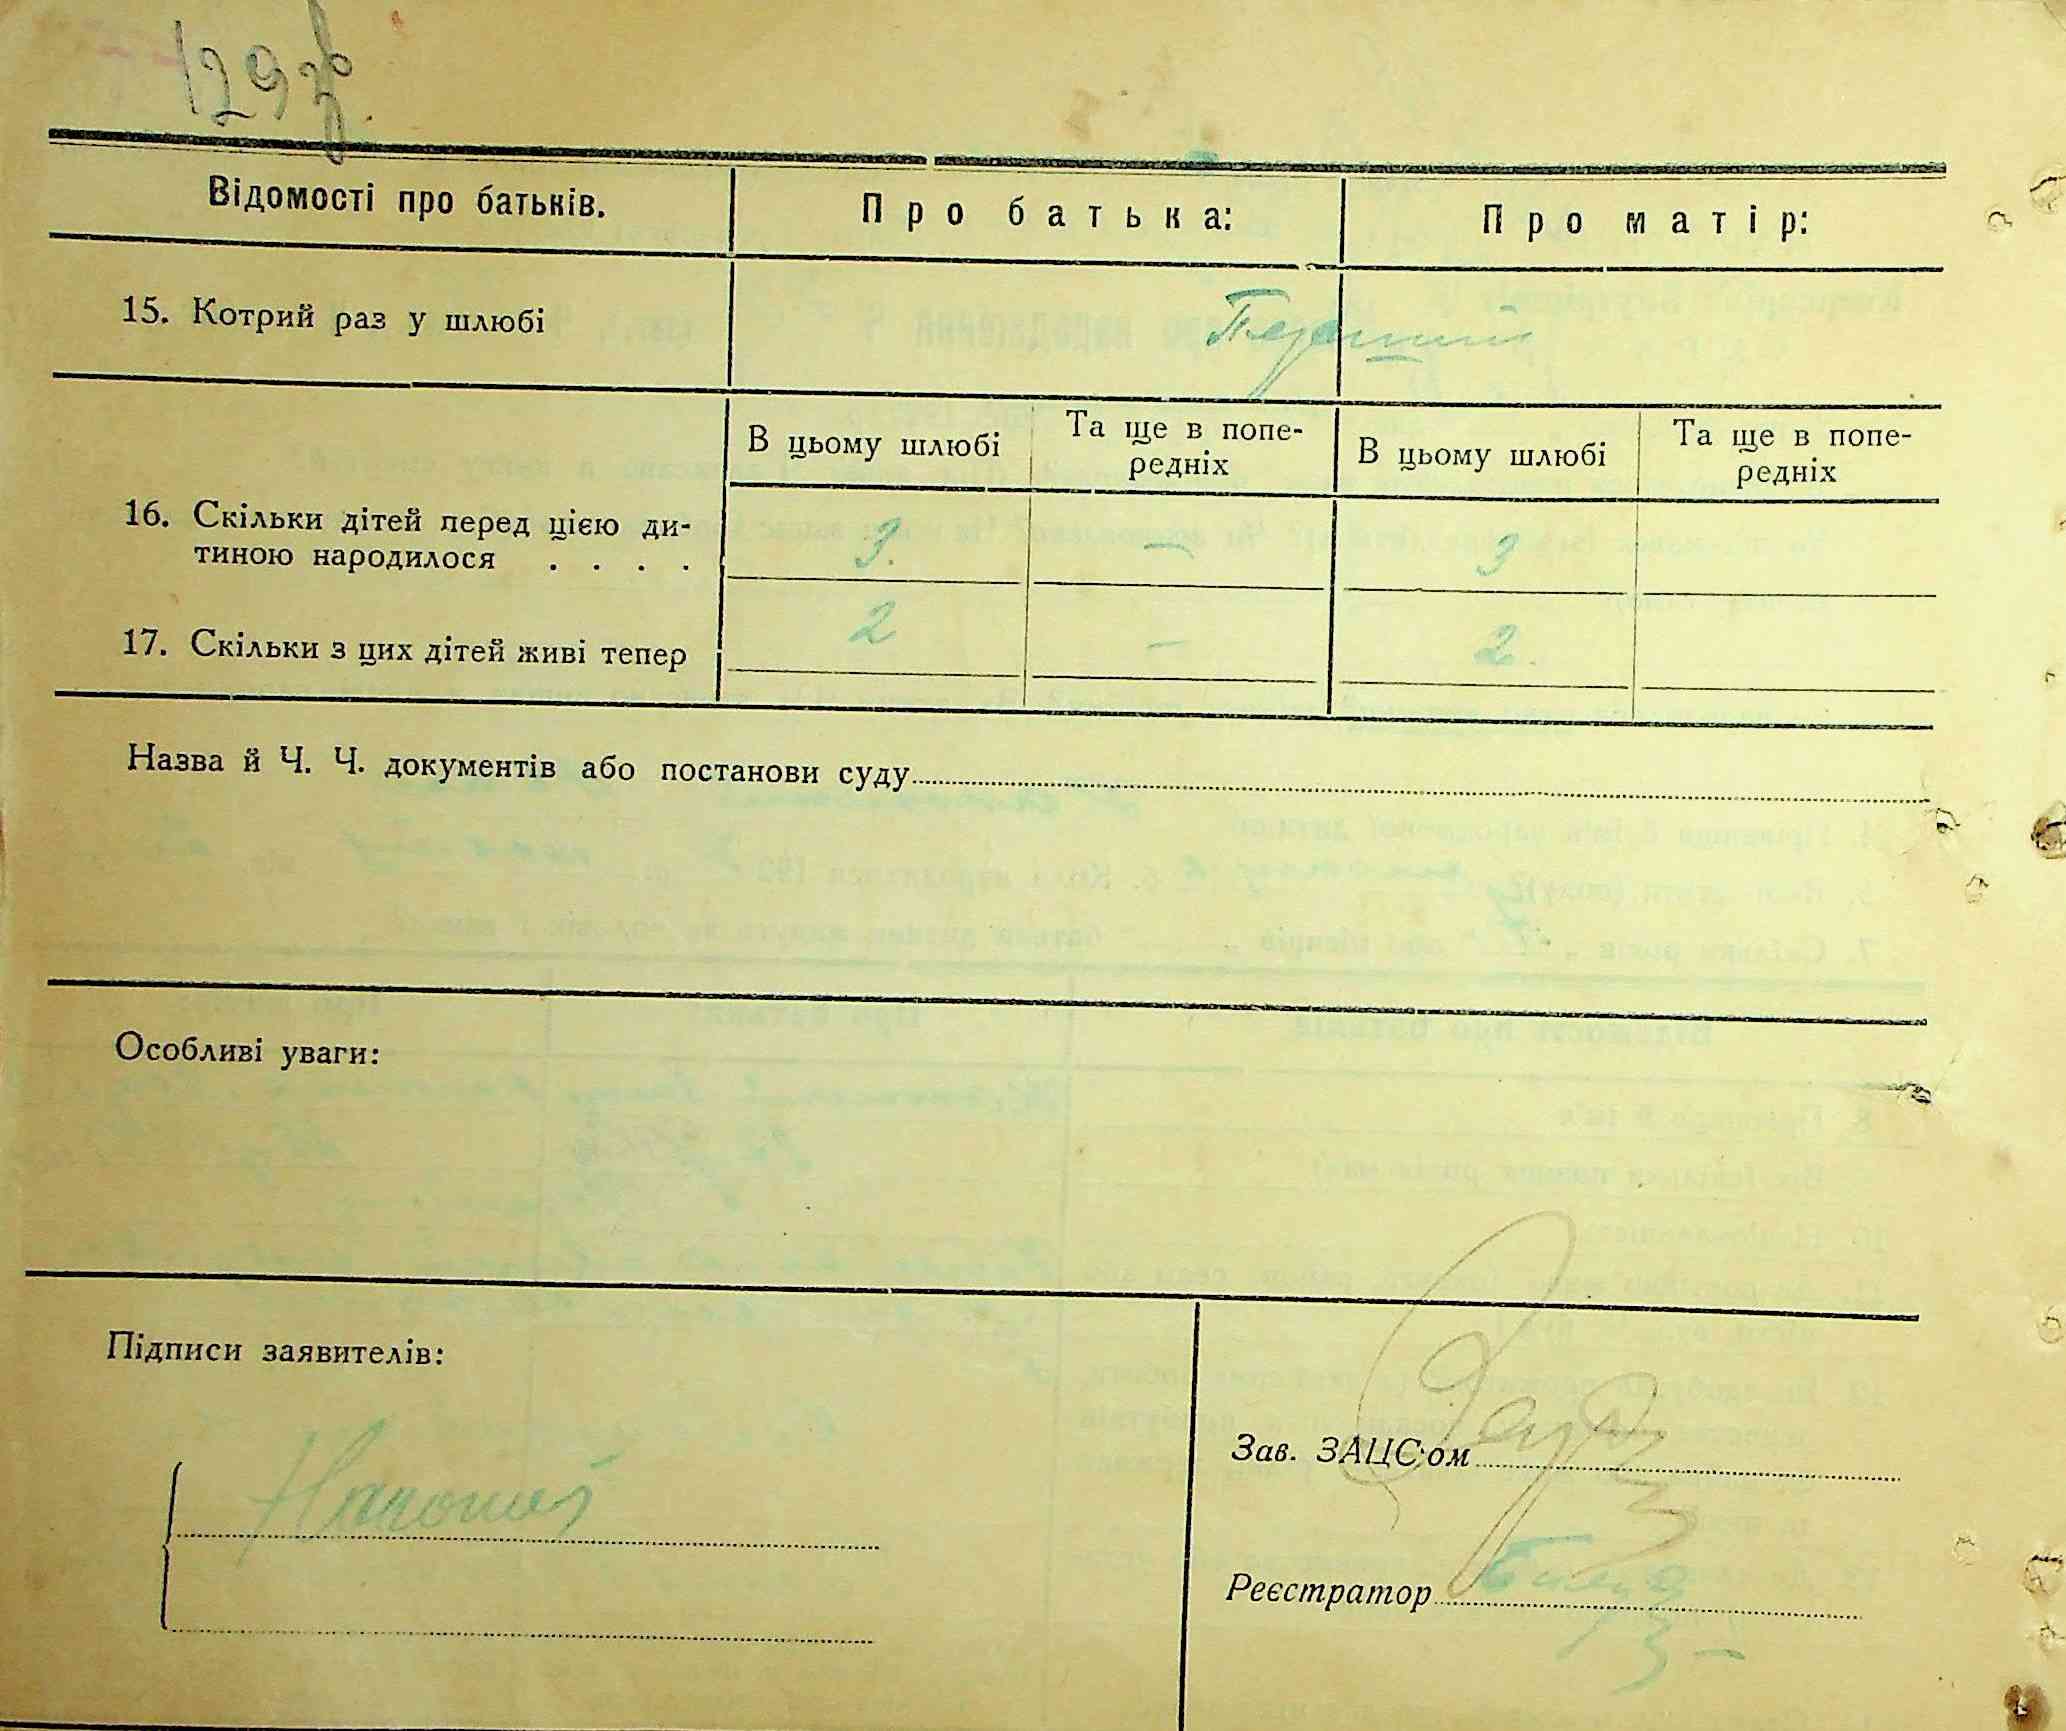 129 зв.
Відомості про батьків. Про батька: Про матір:
15. Котрий раз у шлюбі Перший
В цьому шлюбі Та ще в попе- В цьому шлюбі Та ще в попе-
редніх редніх
16. Скільки дітей перед цією ди-
тиною народилося . . . . 3. — 3
17. Скільки з цих дітей живі тепер 2 — 2.
Назва й Ч. Ч. документів або постанови суду
Особливі уваги:
Підписи заявителів:
Зав. ЗАЦС'ом
Реєстратор